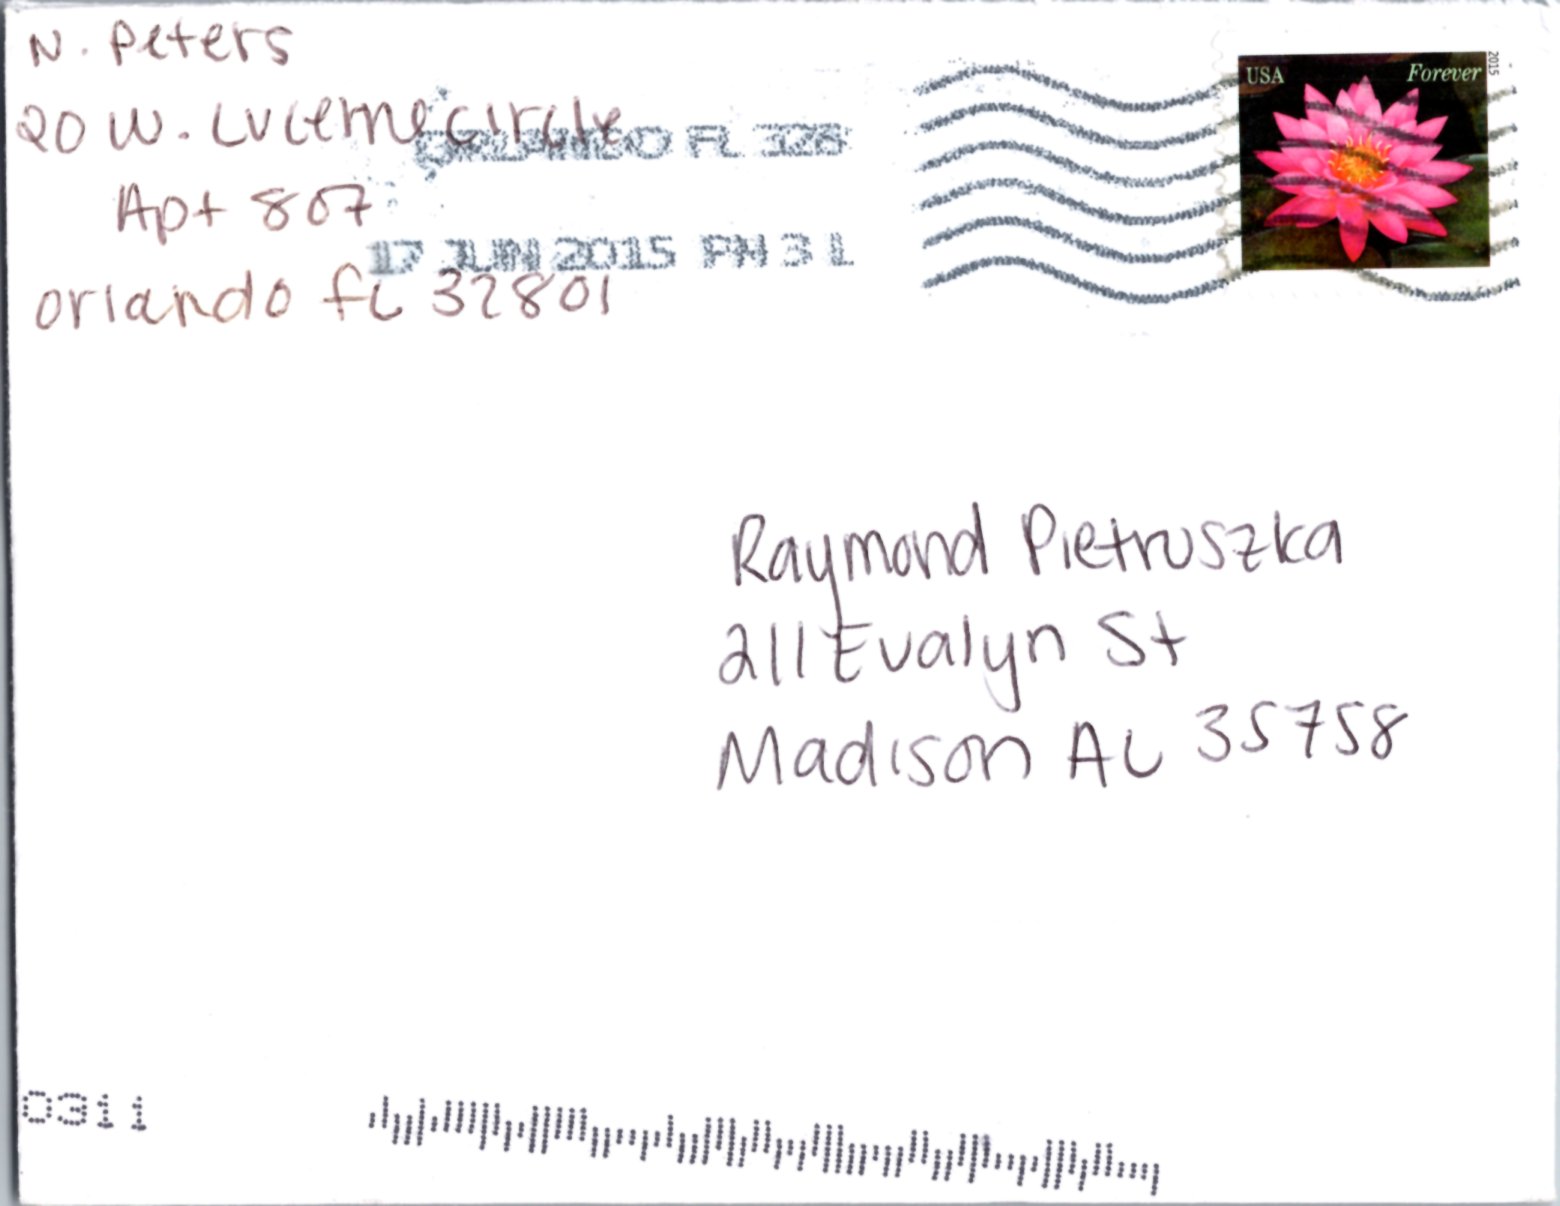 N. Peters
20 W. Lucerne circle
Apt 807
orlando fl 32801
ORLANDO FL 328
17 JUN 2015 PM 3 L
USA Forever
2015
Raymond Pietruszka
211 Evalyn St
Madison AL 35758
0311